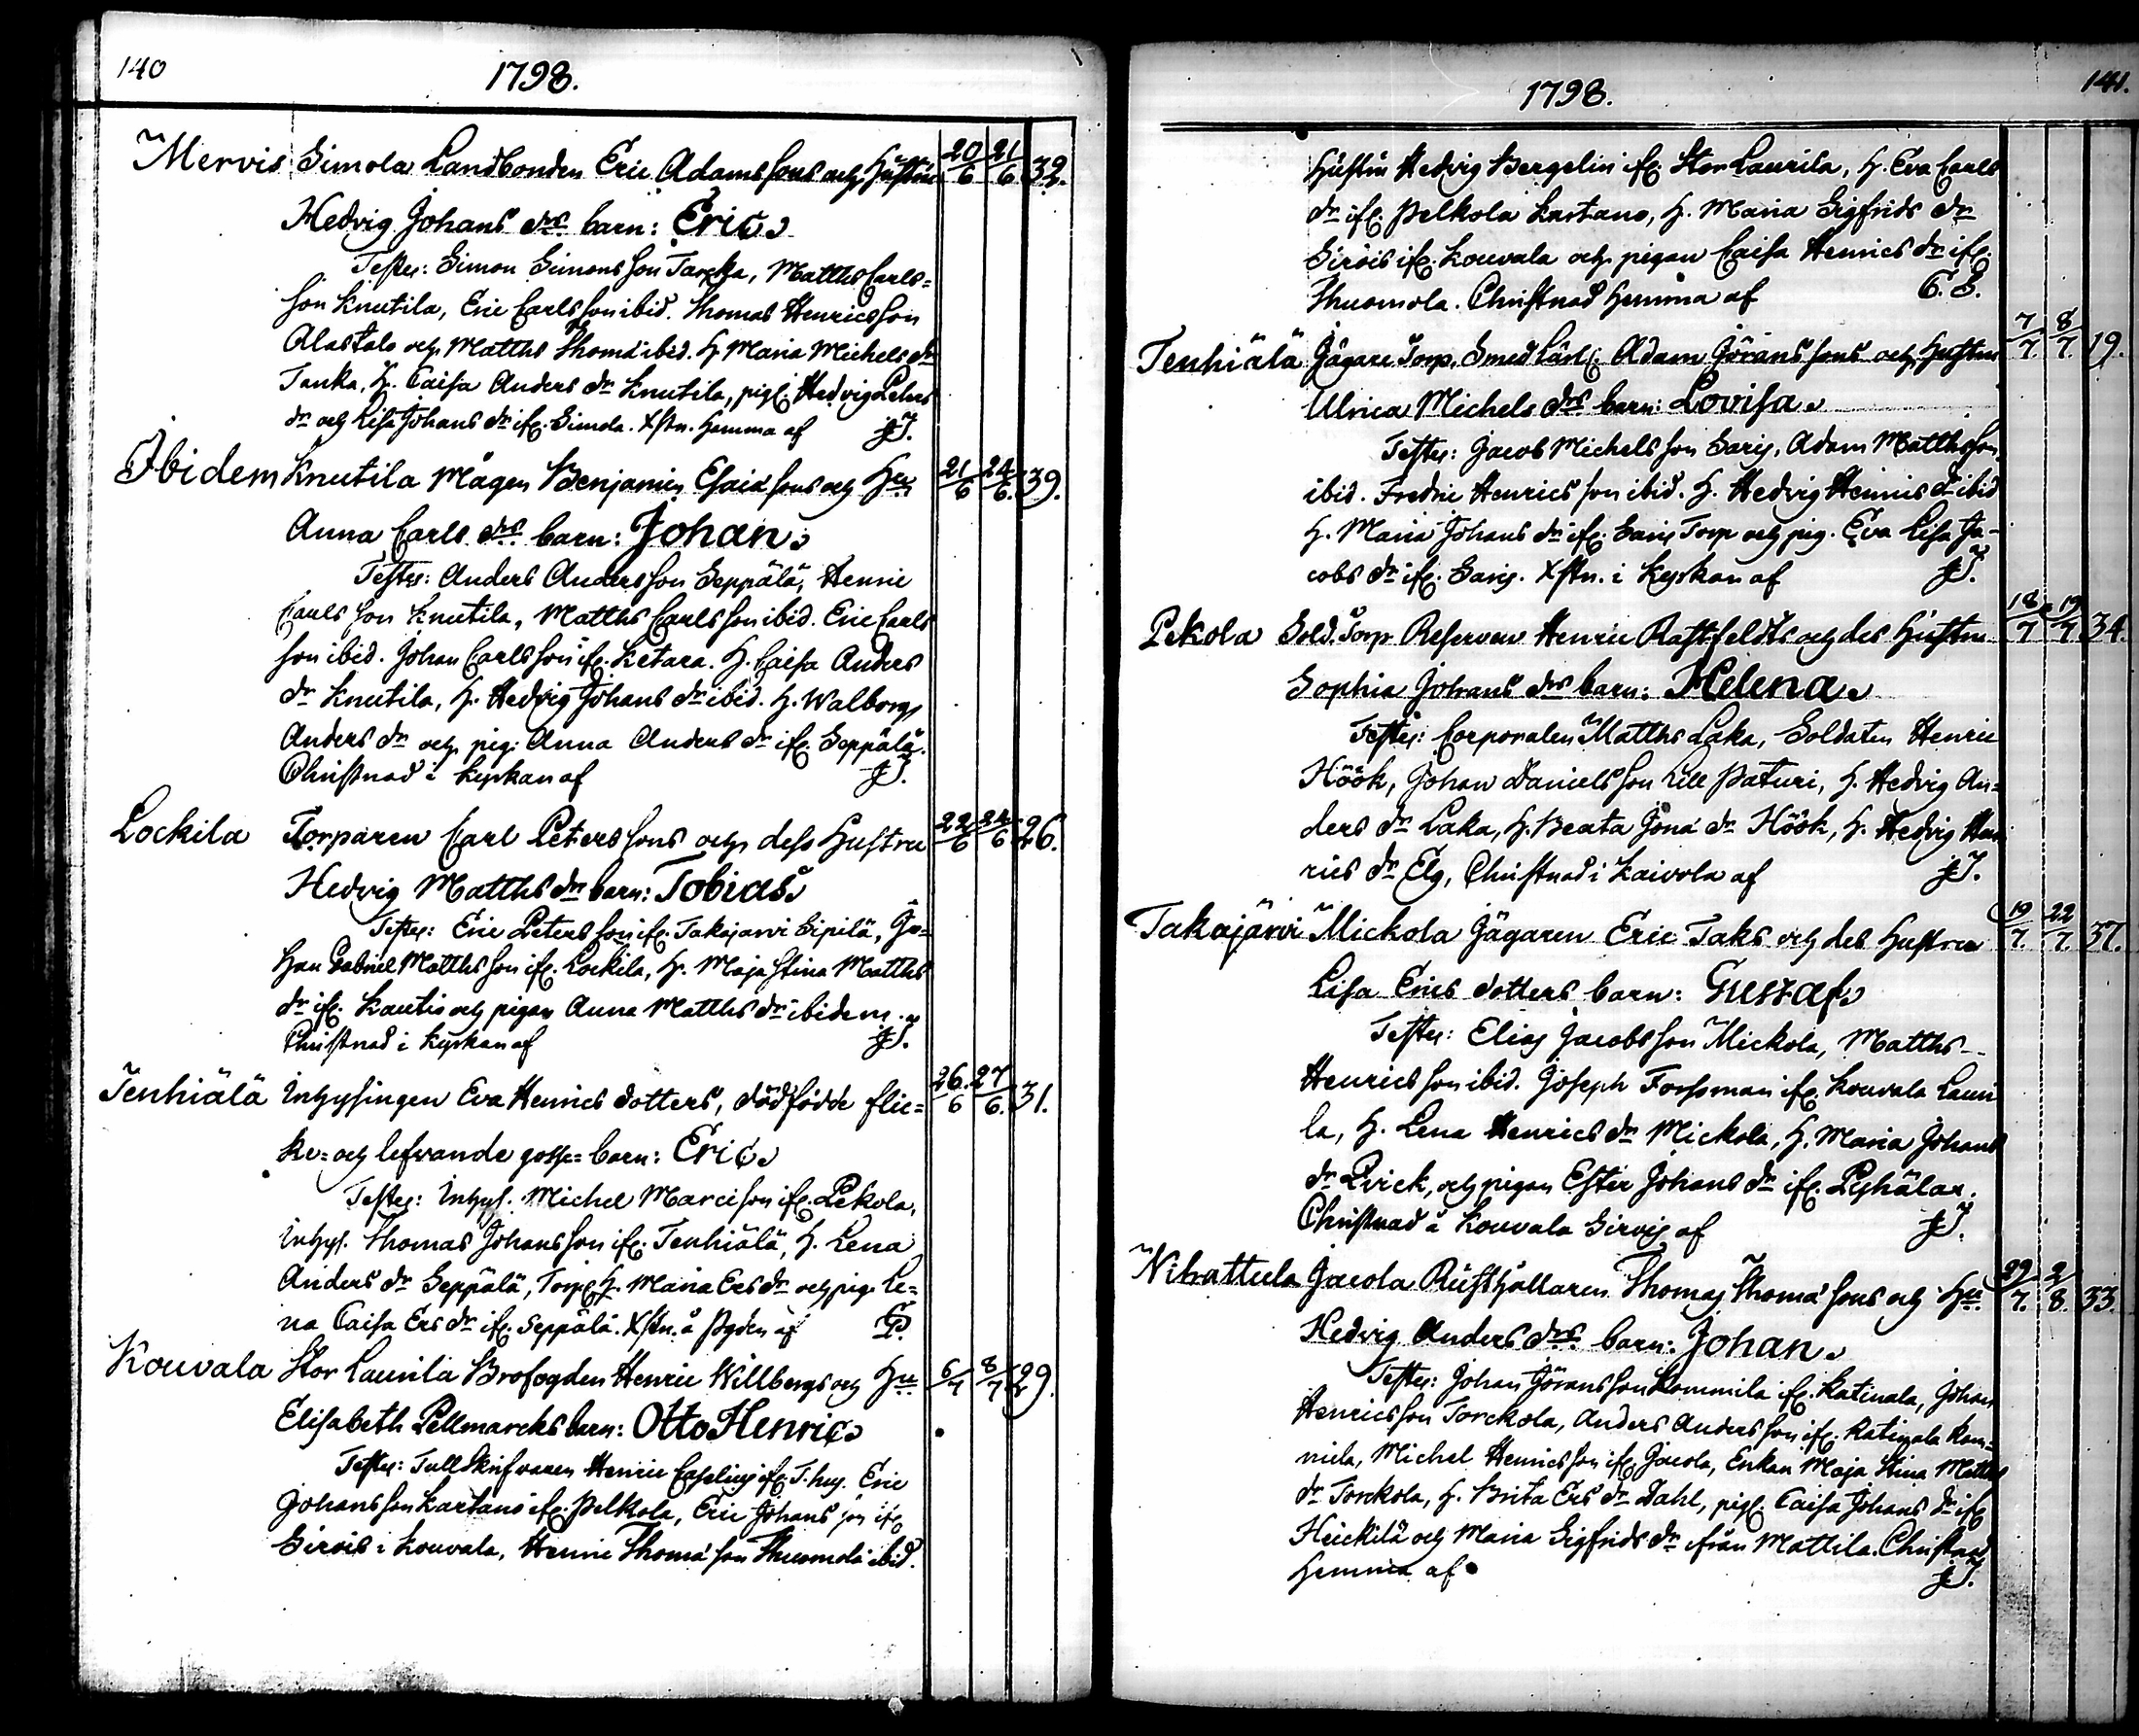 140
1798.
Mervis Simola Landbonden Eric Adamssons och Hustrus 20/6 21/6 32.
Hedvig Johans drs barn: Eric.
Testes: Simon Simonsson Tareka, Matths Carls=
son Knutila, Eric Carlsson ibid. Thomas Henricsson
Alastalo och Matths Thomæ ibid. H. Maria Michels dr
Tanka, H. Caisa Anders dr Knutila, pig. Hedvig Pehrs
dr och Lisa Johans dr ifr. Simola. Xstn. hemma af JJ.
Ibidem Knutila Mågen Benjamin Esaiæ sons och Hu 21/6 24/6 39.
Anna Carls drs barn: Johan.
Testes: Anders Andersson Seppälä, Henric
Carls son Knutila, Matths Carlsson ibid. Eric Carls
son ibid. Johan Carlsson ifr. Ketara. H. Caisa Anders
dr Knutila, H. Hedvig Johans dr ibid. H. Walborg
Anders dr och pig: Anna Anders dr ifr. Seppälä.
Christnad i Kyrkan af JJ.
Lockila Torparen Carl Peterssons och dess Hustru 22/6 24/6 26.
Hedvig Matths drs barn: Tobias.
Testes: Eric Petersson ifr. Takajärvi Sipilä, Jo=
han Gabriel Matthsson ifr. Lockila, H. Maja Stina Matths
dr ifr. Kautio och pigan Anna Matths dr ibidem.
Christnad i Kyrkan af JJ.
Tenhiälä Inhysingen Eva Henrics dotters, dödfödde flic= 26/6 27/6 31.
ke= och lefwande gosse=barn: Eric.
Testes: Inhys. Michel Marcisson ifr. Pekola,
Inhys. Thomas Johansson ifr. Tenhiälä, H. Lena
Anders dr Seppälä, Torp. H. Maria Ers dr och pig. Le=
na Caisa Ers dr ifr. Seppälä. Xstn. å Bygden af
Kouvala Stor Laurila Brofogden Henric Willbergs och Hu 6/7 8/7 29.
Elisabeth Pellmarcks barn: Otto Henric.
Testes: Tullskrifvaren Henric ifr. T.hus. Eric
Johansson Kartano ifr. Pelkola, Eric Johans son ifr.
Sirois i Kouvala, Henric Thomæ son Thuomola ibid.
141.
1798.
Hustru Hedvig Bergelin ifr. Stor Laurila, H. Eva Carls
dr ifr. Pelkola Kartano, H. Maria Sigfrids dr
Sirois ifr. Kouvala och pigan Caisa Henrics dr ifr.
Thuomola. Christnad hemma af
Tenhiälä Jägare Torp. Smed Carl: Adam Göranssons och Hustru 7/7 8/7 19.
Ulrica Michels drs barn: Lovisa.
Testes: Jacob Michelsson Sarij, Adam Matthsson
ibid. Fredric Henricsson ibid. H. Hedvig Henrics dr ibid
H. Maria Johans dr ifr. Sarij Torp och pig. Eva Lisa Ja-
cobs dr ifr. Sarij. Xstn. i Kyrkan af JJ.
Pekola Sold. Torp Reserven Henric Rastfeldts och des Hustru 18/7 19/7 34.
Sophia Johans drs barn: Helena.
Testes: Corporalen Matths Laka, Soldaten Henric
Höök, Johan Danielsson Lill Paturi, H. Hedvig An=
ders dr Laka, H. Beata Jonæ dr Höök, H. Hedvig Hen
rics dr Elg, Christnad i Kaivola af JJ.
Takajärvi Mickola Jägaren Eric Taks och des Hustru 19/7. 22/7. 37.
Lisa Erics dotters barn: Gustaf.
Testes: Elias Jacobsson Mickola, Matths
Henricsson ibid. Joseph Forssman ifr. Kouvala Lauri
la, H. Lena Henrics dr Mickola, H. Maria Johans
dr Qvick, och pigan Ester Johans dr ifr. Pyhälax.
Christnad å Kouvala Sirvis af JJ.
Nihattula Jacola Rusthållaren Thomas Thomæ sons och Hu 29/7. 2/8. 33.
Hedvig Anders drs barn: Johan.
Testes: Johan Göransson Kommila ifr. Katinala, Johan
Henricsson Torckola, Anders Andersson ifr. Katinala Kom=
mila, Michel Henricsson ifr. Jacola, Enkan Maja Stina Matths
dr Torckola, H. Brita Ers dr Dahl, pig. Caisa Johans dr ifr
Heickilä och Maria Sigfrids dr ifrån Mattila. Christnad
hemma af JJ.